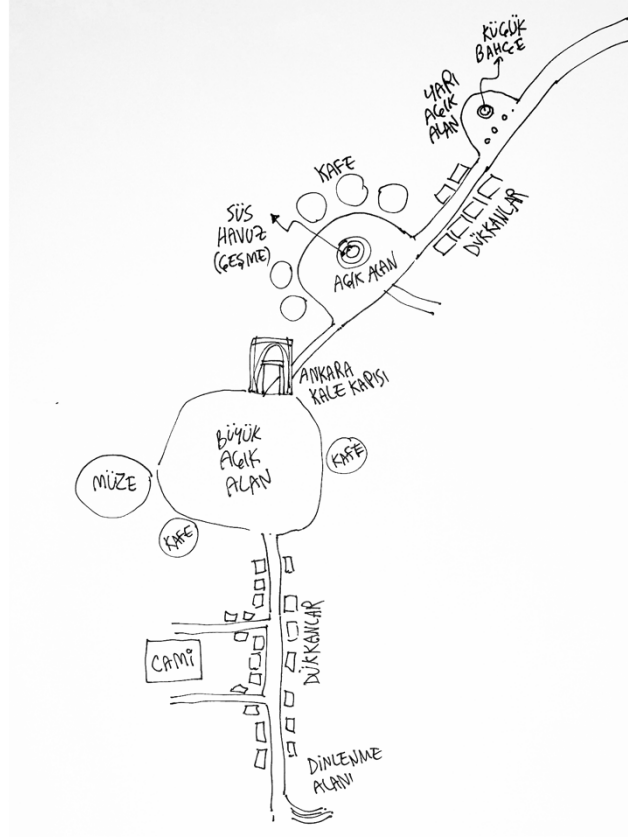 KÜÇÜK
BAHÇE
YARI
AÇIK
ALAN
KAFE
SÜS
HAVUZ
(ÇEŞME)
AÇIK ALAN
DÜKKANLAR
ANKARA
KALE KAPISI
BÜYÜK
AÇIK
ALAN
KAFE
MÜZE
KAFE
DÜKKANLAR
CAMİ
DİNLENME
ALANI